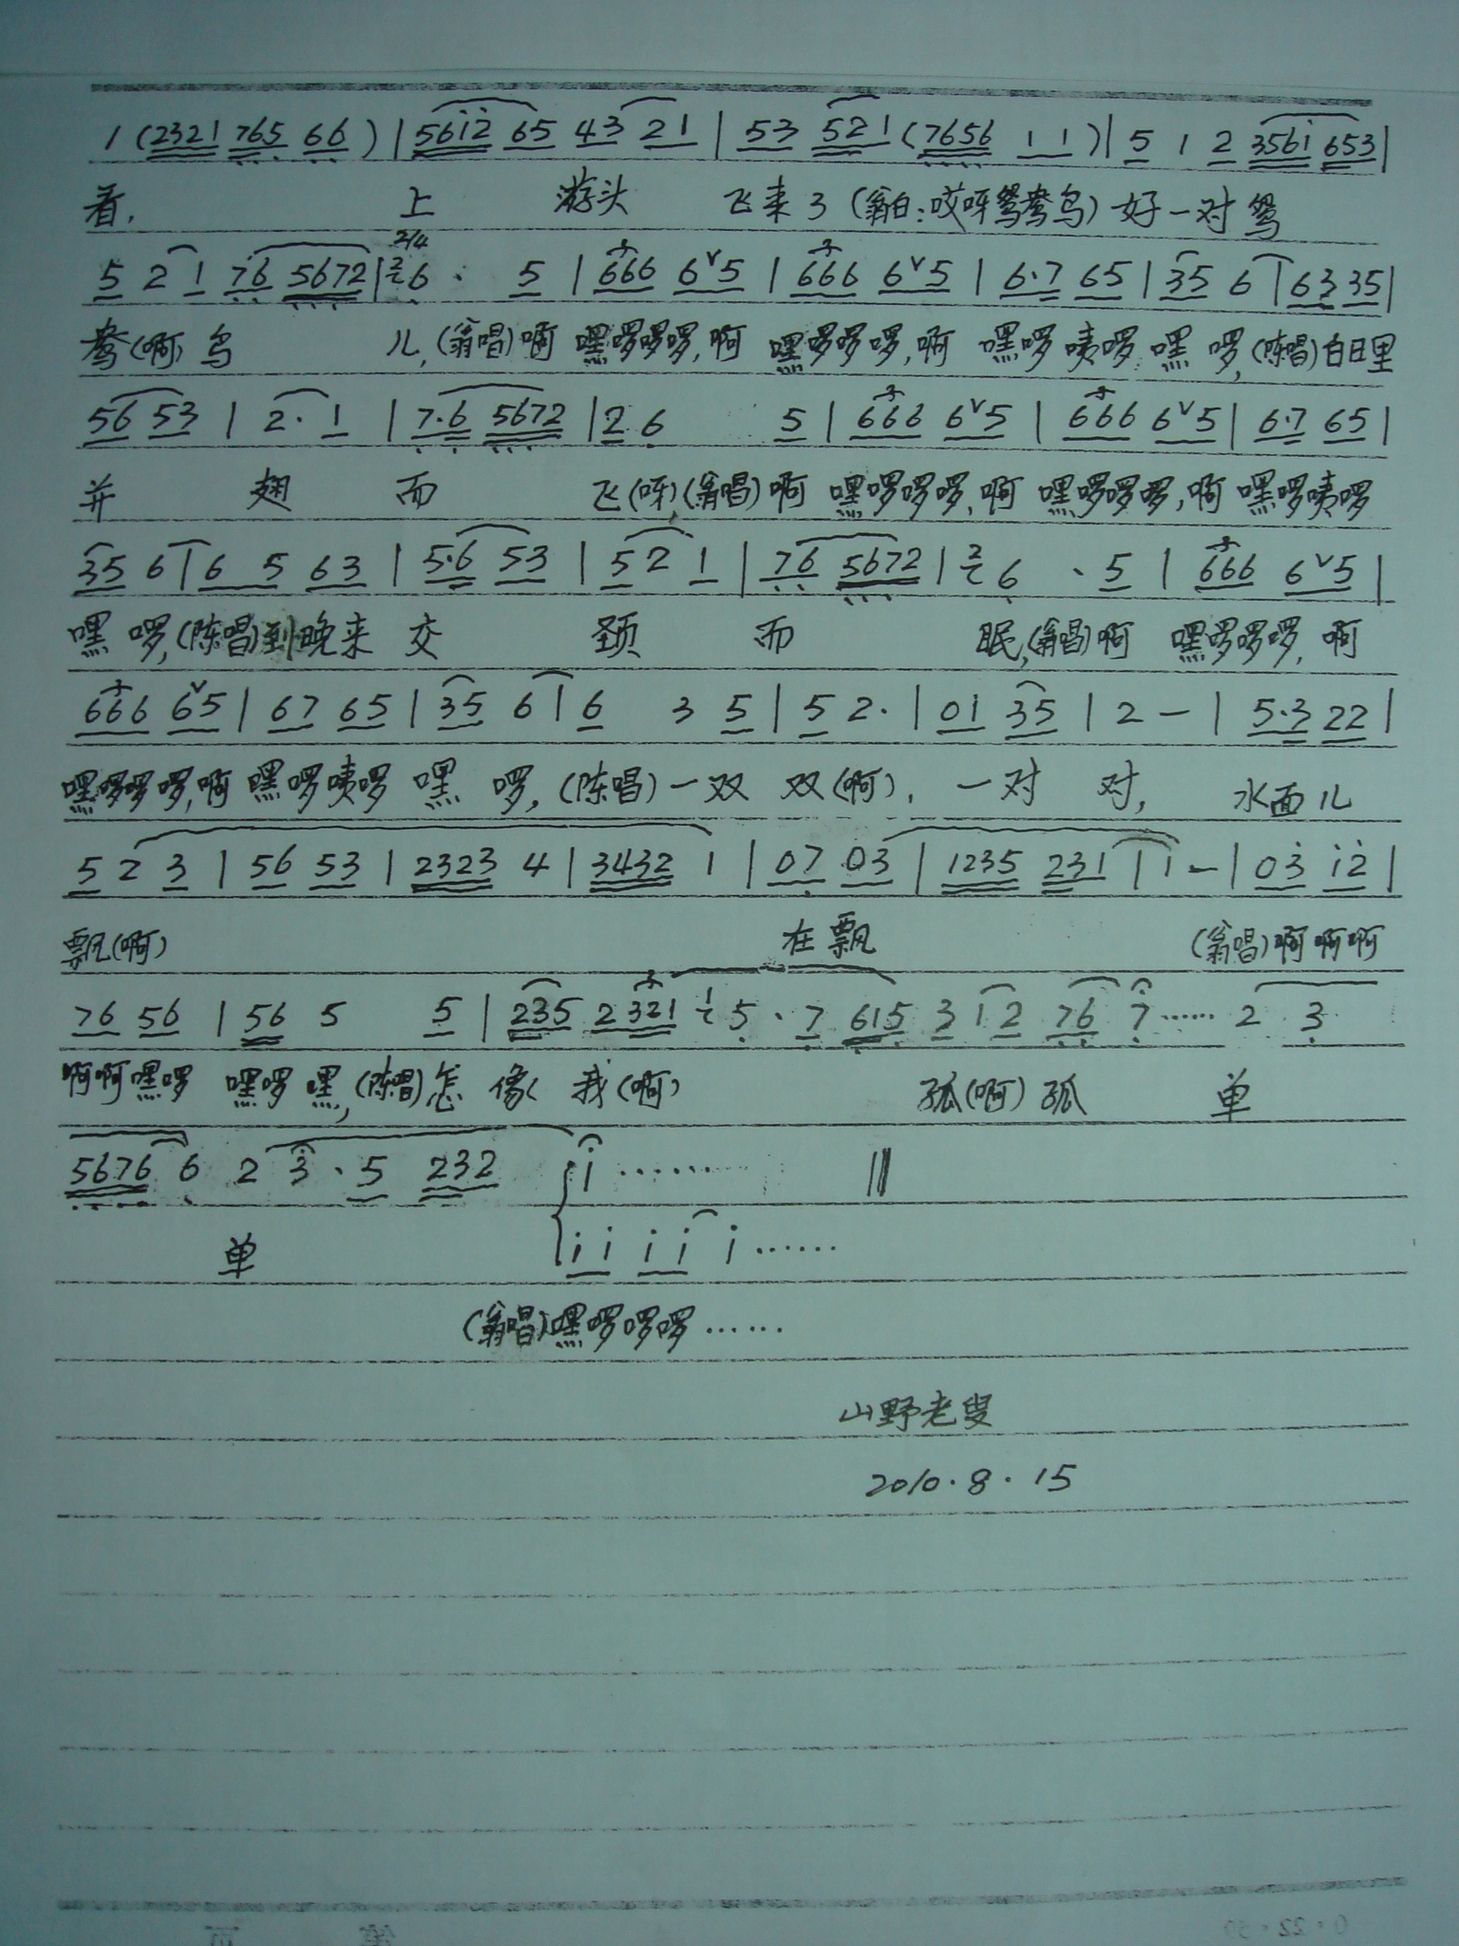 1 (2321 765 66) | 5612 65 43 21 | 53 521 (7656 1 1) | 5 1 2 3561 653 |
看, 上 游头 飞来了 (翁白:哎呀鸳鸯鸟) 好一对鸳
2/4
5 2 1 76 5672 | 2 6 · 5 | 666 6ᵛ5 | 666 6ᵛ5 | 6·7 65 | 35 6 | 63 35 |
鸯(啊)鸟 儿, (翁唱)啊 嘿啰啰啰, 啊 嘿啰啰啰, 啊 嘿啰咦啰 嘿 啰, (陈唱)白日里
56 53 | 2· 1 | 7·6 5672 | 2 6 5 | 666 6ᵛ5 | 666 6ᵛ5 | 6·7 65 |
并 翅 而 飞(呀), (翁唱)啊 嘿啰啰啰, 啊 嘿啰啰啰, 啊 嘿啰咦啰
35 6 | 6 5 63 | 5·6 53 | 5 2 1 | 76 5672 | 2 6 · 5 | 666 6ᵛ5 |
嘿 啰, (陈唱)到晚来 交 颈 而 眠, (翁唱)啊 嘿啰啰啰, 啊
666 6ᵛ5 | 67 65 | 35 6 | 6 3 5 | 5 2· | 01 35 | 2 — | 5·3 22 |
嘿啰啰啰, 啊 嘿啰咦啰 嘿 啰, (陈唱)一双 双(啊), 一对 对, 水面儿
5 2 3 | 56 53 | 2323 4 | 3432 1 | 07 03 | 1235 231 | 1 — | 03 12 |
飘(啊) 在飘 (翁唱)啊啊啊
76 56 | 56 5 5 | 235 2 321 1 5 · 7 615 3 1 2 76 7 …… 2 3
啊啊嘿啰 嘿啰 嘿, (陈唱)怎 像 我(啊) 孤(啊)孤 单
5676 6 2 3 · 5 232 i ……
单 i i i i i ……
(翁唱)嘿啰啰啰……
山野老叟
2010·8·15